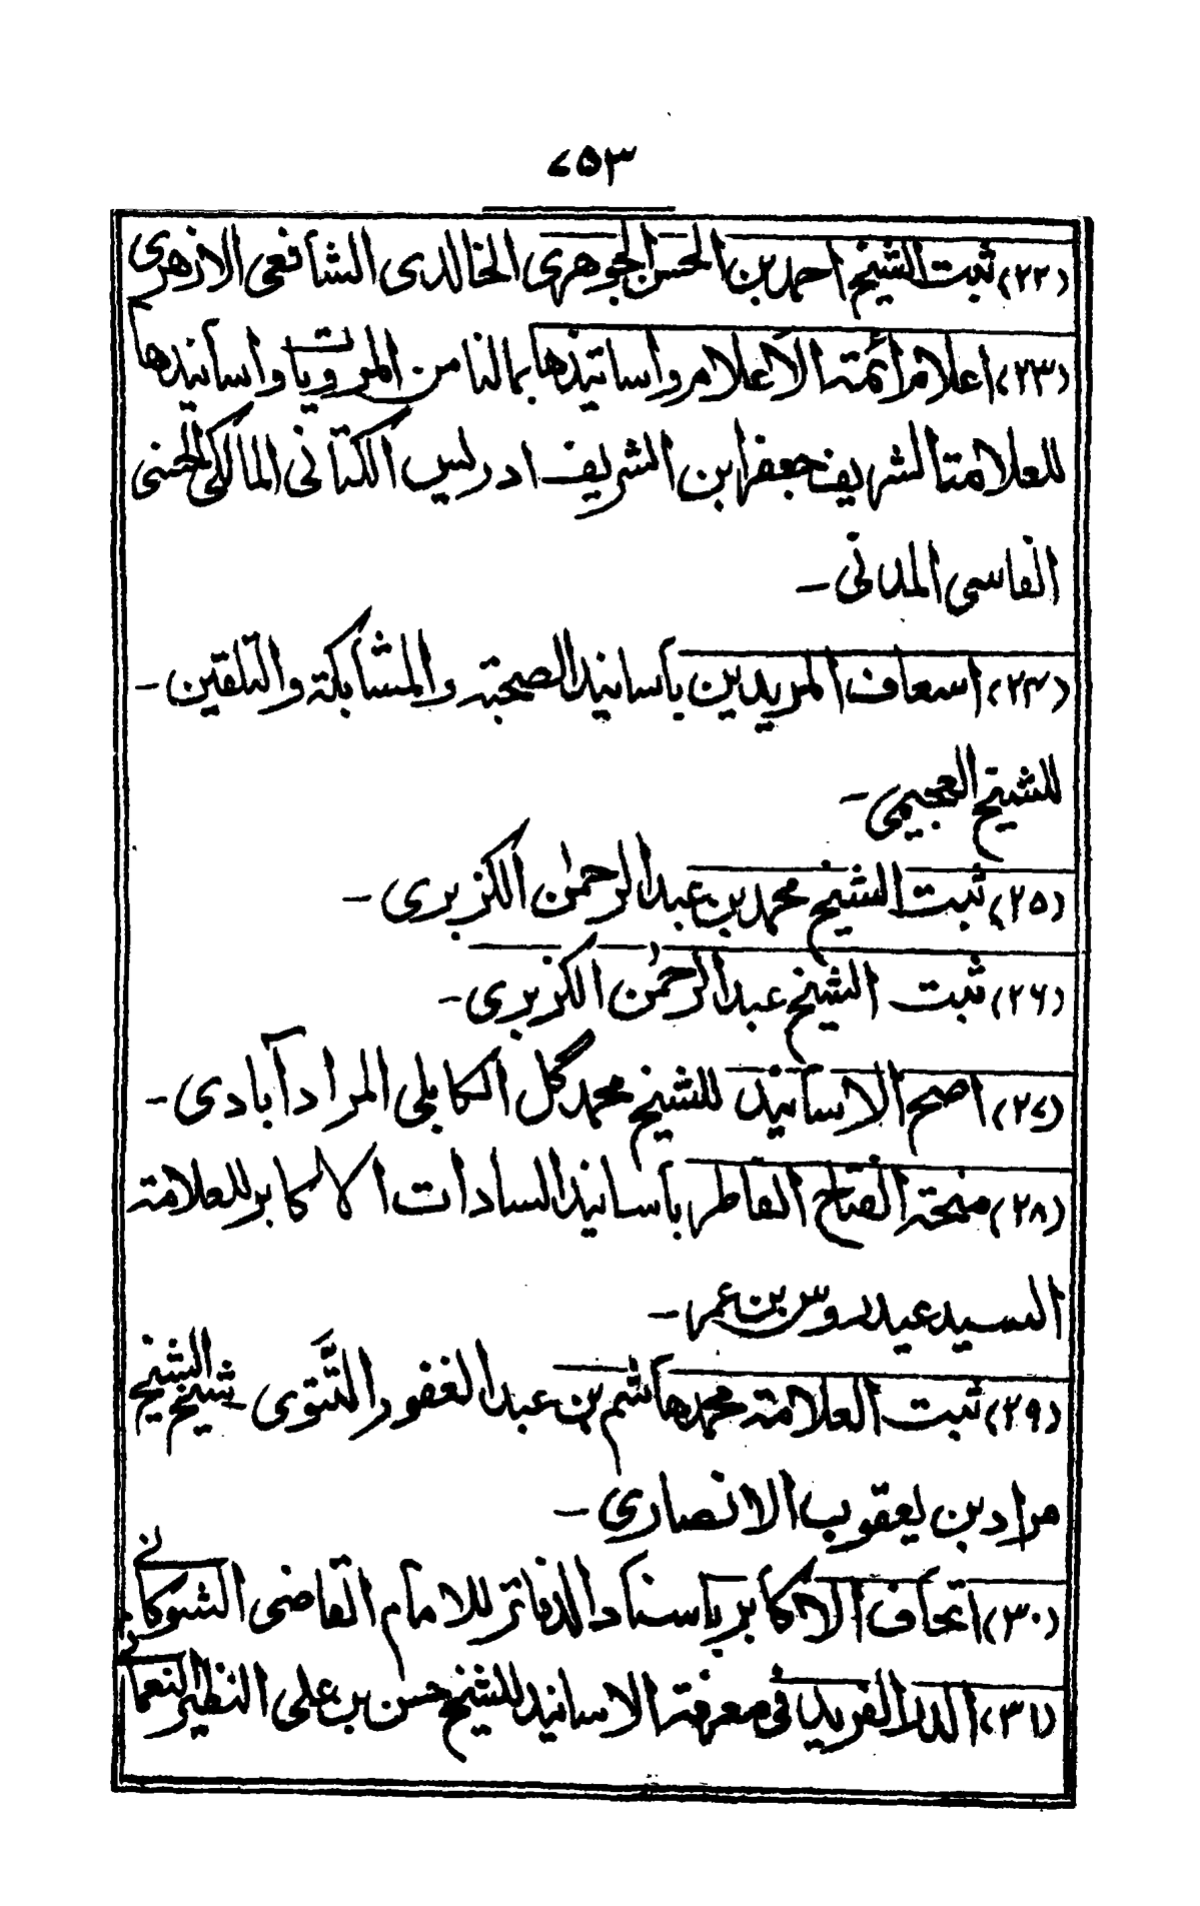 ۷۵۳
(۲۲) ثبت الشیخ احمد بن الحسن الجوهری الخالدی الشافعی الازهری
(۲۳) اعلام ائمة الاعلام واساتیذها بمالنا من المرویات واسانیدها
للعلامة الشریف جعفر ابن الشریف ادریس الکتانی المالکی الحسنی
الفاسی المدنی ـ
(۲۴) اسعاف المریدین بأسانید الصحبة والمشابکة والتلقین ـ
للشیخ العجیمی ـ
(۲۵) ثبت الشیخ محمد بن عبد الرحمٰن الکزبری ـ
(۲۶) ثبت الشیخ عبد الرحمٰن الکزبری ـ
(۲۷) اصح الاسانید للشیخ محمد گل الکابلی المرادآبادی ـ
(۲۸) منحة الفتاح الفاطر بأسانید السادات الاکابر للعلامة
السید عیدروس بن عمر ـ
(۲۹) ثبت العلامة محمد هاشم بن عبد الغفور التَّتَوی ـ شیخ الشیخ
مراد بن یعقوب الانصاری ـ
(۳۰) اتحاف الاکابر بأسناد الدفاتر للامام القاضی الشوکانی
(۳۱) الدر الفرید فی معرفة الاسانید للشیخ حسن بن علی النظیر النعمانی